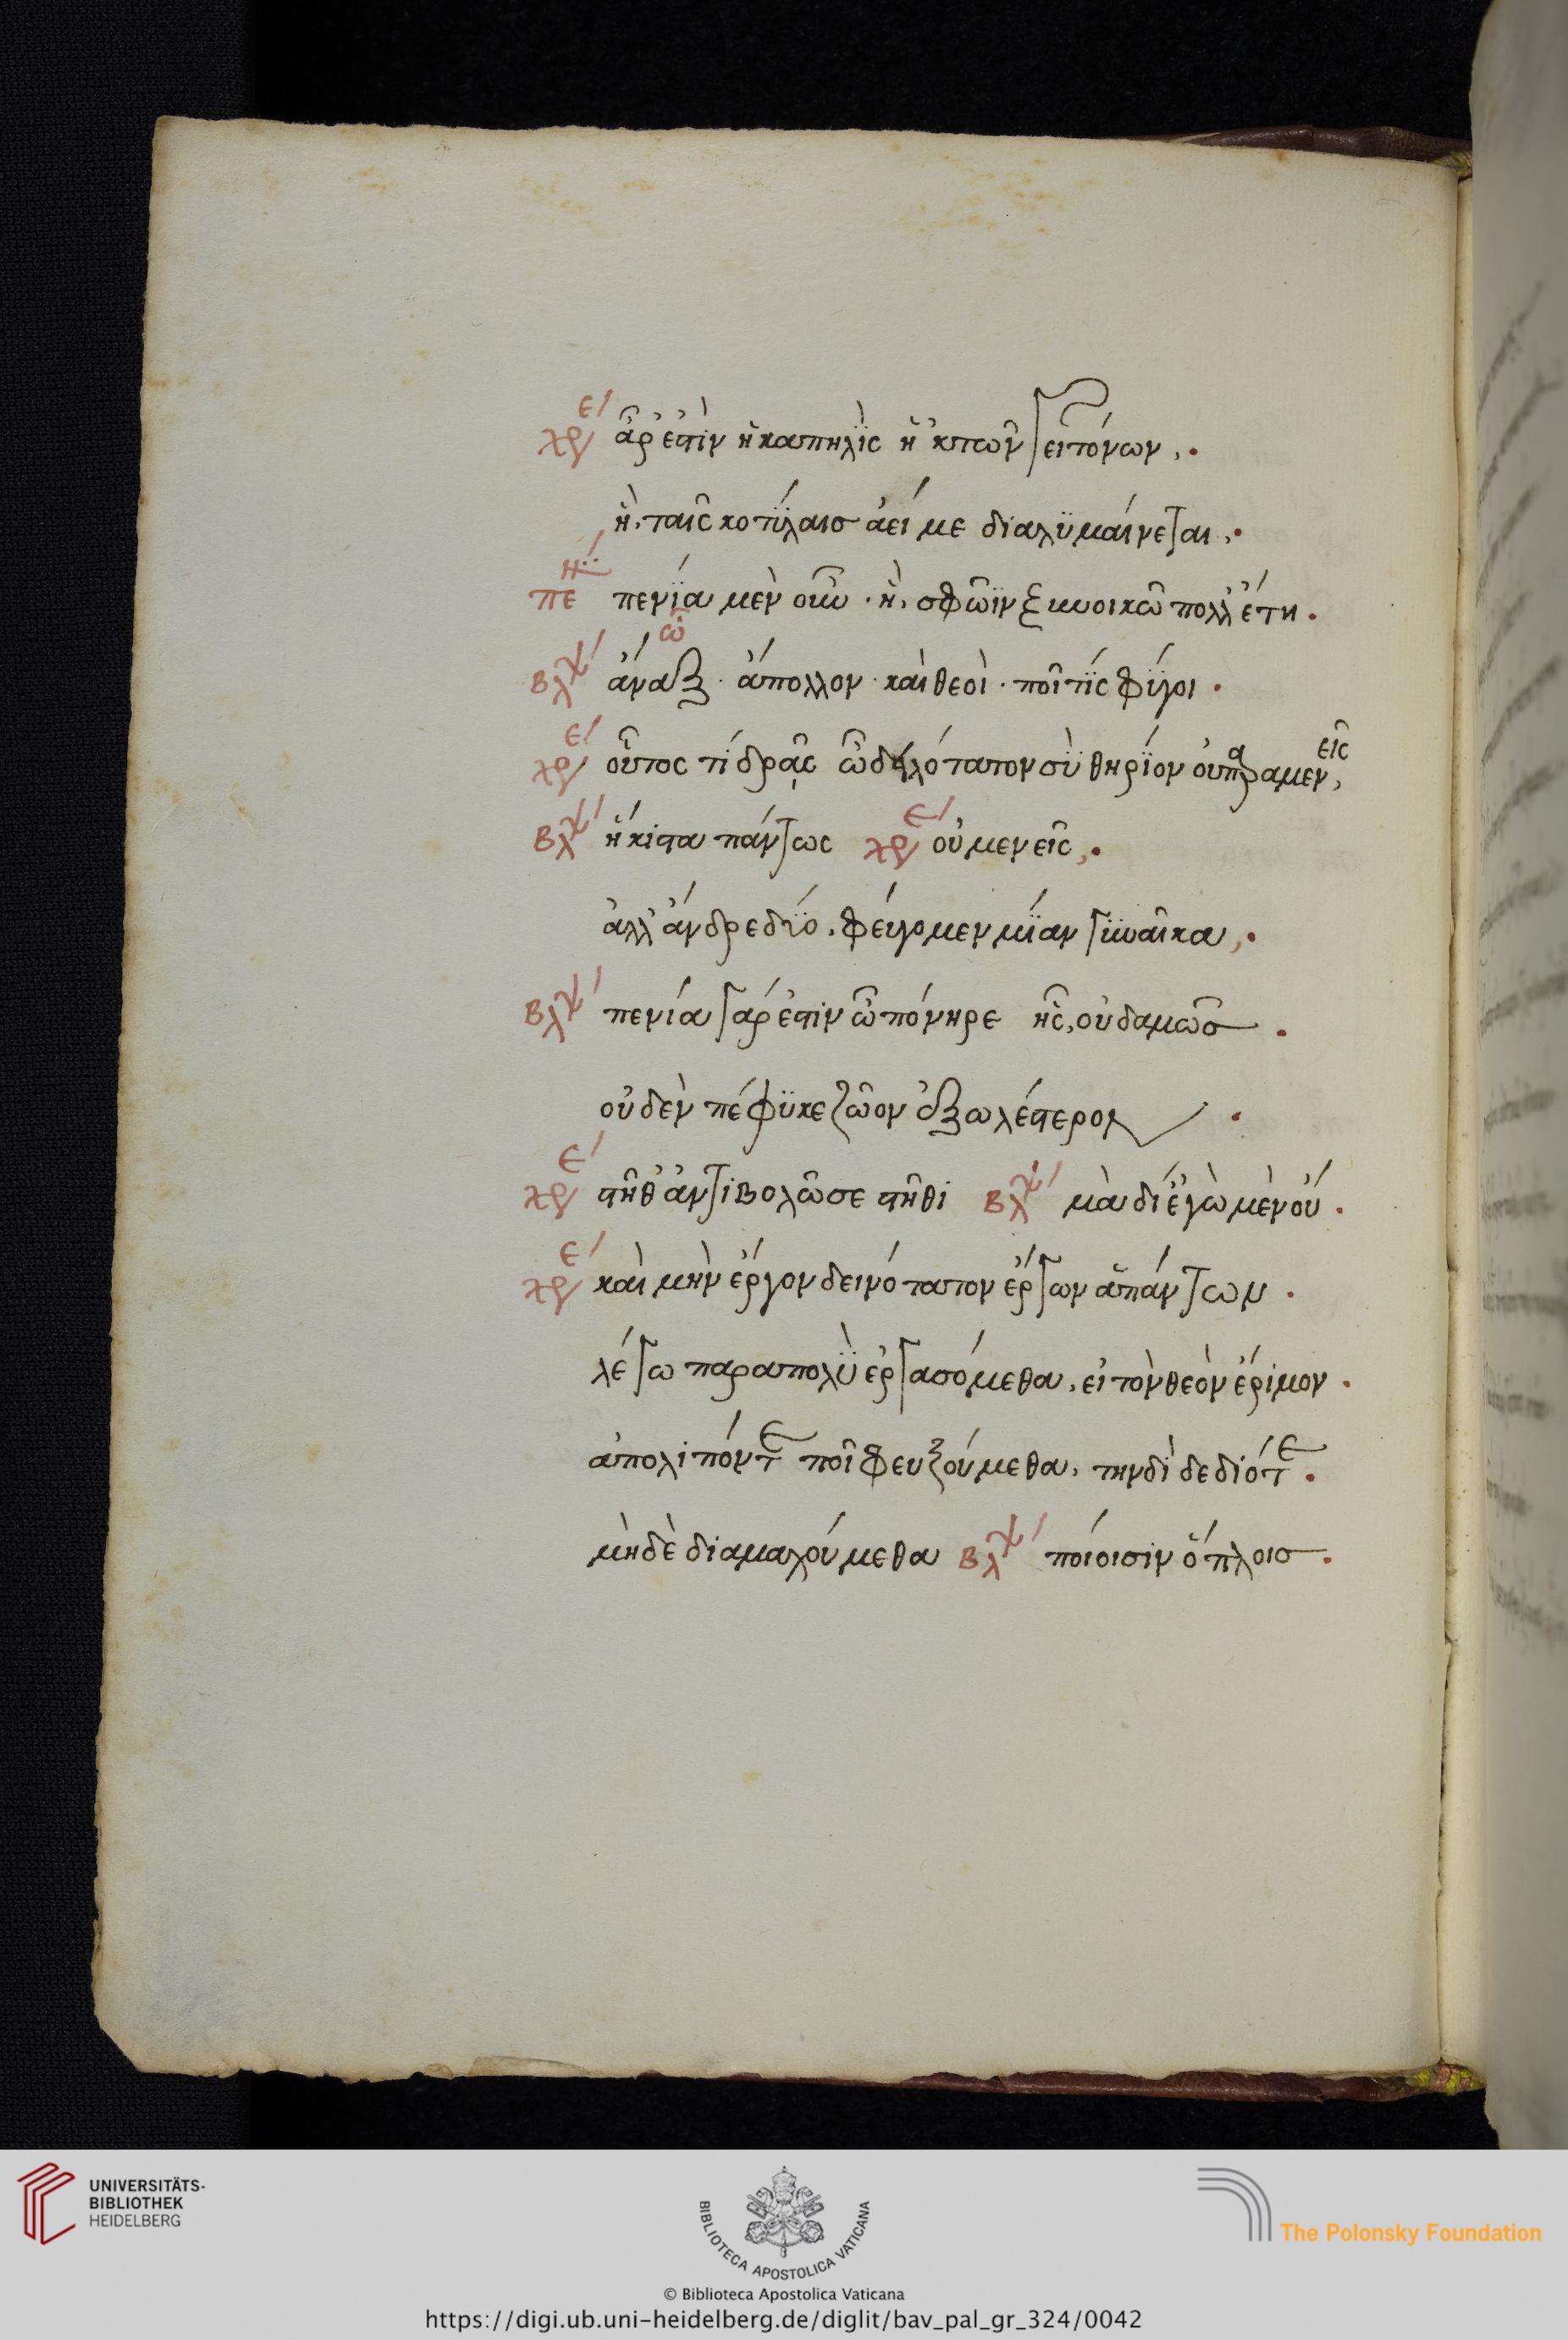 χρε ἆρ' ἐστὶν ἡ καπηλὶς ἡ 'κ τῶν γειτόνων,
ἣ ταῖς κοτύλαις ἀεί με διαλυμαίνεται.
πεν πενία μὲν οὖν. ἣ σφῶϊν ξυνοικῶ πόλλ' ἔτη.
βλχ ὦ ἄναξ. ἄπολλον καὶ θεοί. ποῖ τίς φύγοι.
χρε οὗτος τί δρᾷς ὦ δειλότατον σὺ θηρίον οὐ παραμενεῖς,
βλχ ἥκιστα πάντως χρε οὐ μενεῖς,
ἀλλ' ἄνδρε δύο, φεύγομεν μίαν γυναῖκα,
βλχ πενία γάρ ἐστιν ὦ πόνηρε ἧς, οὐδαμῶς
οὐδὲν πέφυκε ζῶον ἐξωλέστερον.
χρε στῆθ' ἀντιβολῶ σε στῆθι βλχ μὰ δί' ἐγὼ μὲν οὔ.
χρε καὶ μὴν ἔργον δεινότατον ἔργων ἁπάντων.
λέγω παραπολὺ ἐργασόμεθα, εἰ τὸν θεὸν ἔριμον.
ἀπολιπόντε ποῖ φευξούμεθα, τηνδὶ δεδιότε.
μηδὲ διαμαχούμεθα βλχ ποίοισιν ὅπλοις.
UNIVERSITÄTS-
BIBLIOTHEK
HEIDELBERG
BIBLIOTECA APOSTOLICA VATICANA
The Polonsky Foundation
© Biblioteca Apostolica Vaticana
https://digi.ub.uni-heidelberg.de/diglit/bav_pal_gr_324/0042